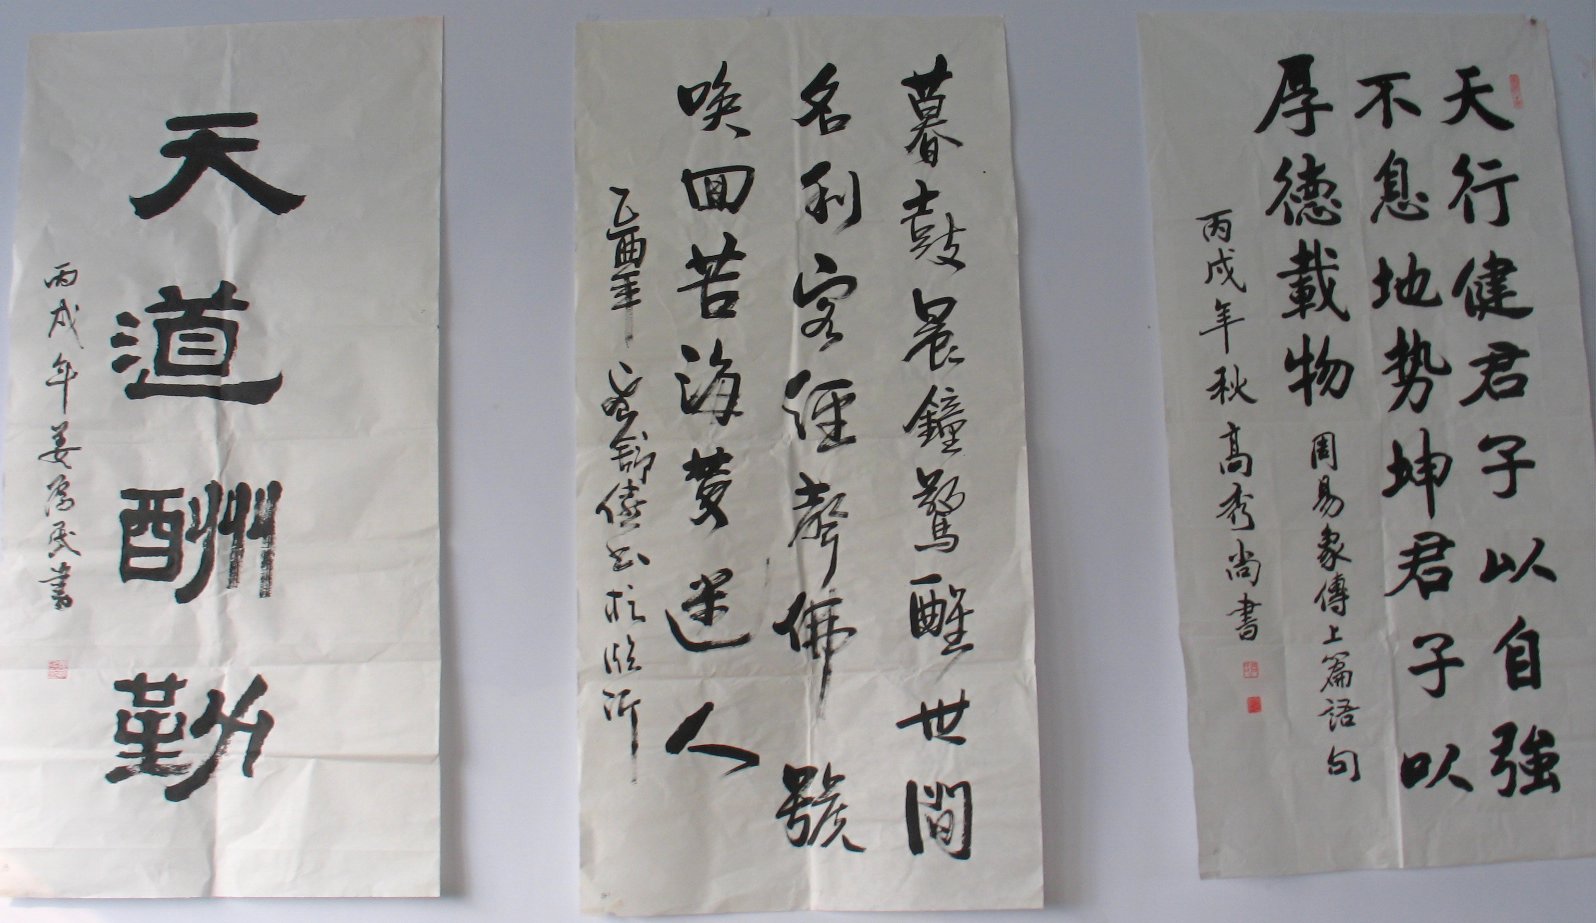 天行健君子以自強
不息地势坤君子以
厚德載物 周易象傳上篇語句
丙戌年秋高秀尚書
暮鼓晨鐘驚醒世間
名利客經聲佛號
喚回苦海夢迷人
乙酉年 书於临沂
天道酬勤
丙戌年姜 民書